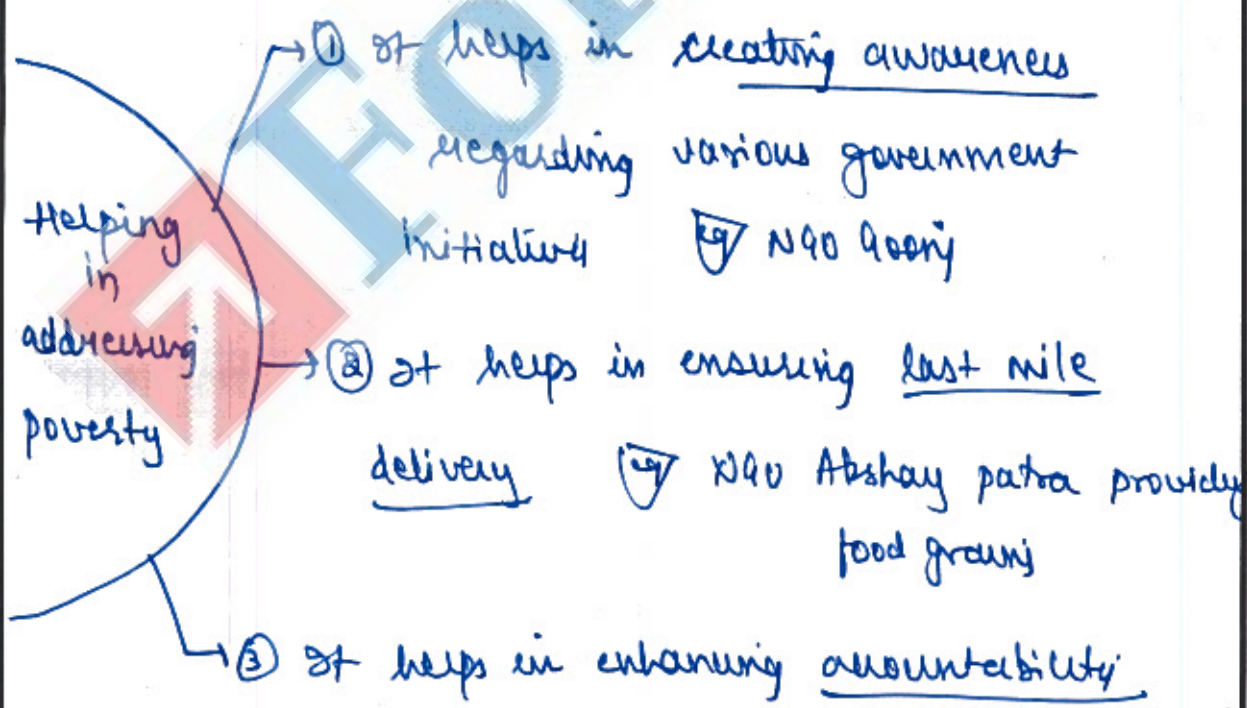 Helping
in
addressing
poverty
① It helps in creating awareness
regarding various government
initiatives eg NGO Goonj
② It helps in ensuring last mile
delivery eg NGO Akshay patra provides
food grains
③ It helps in enhancing accountability